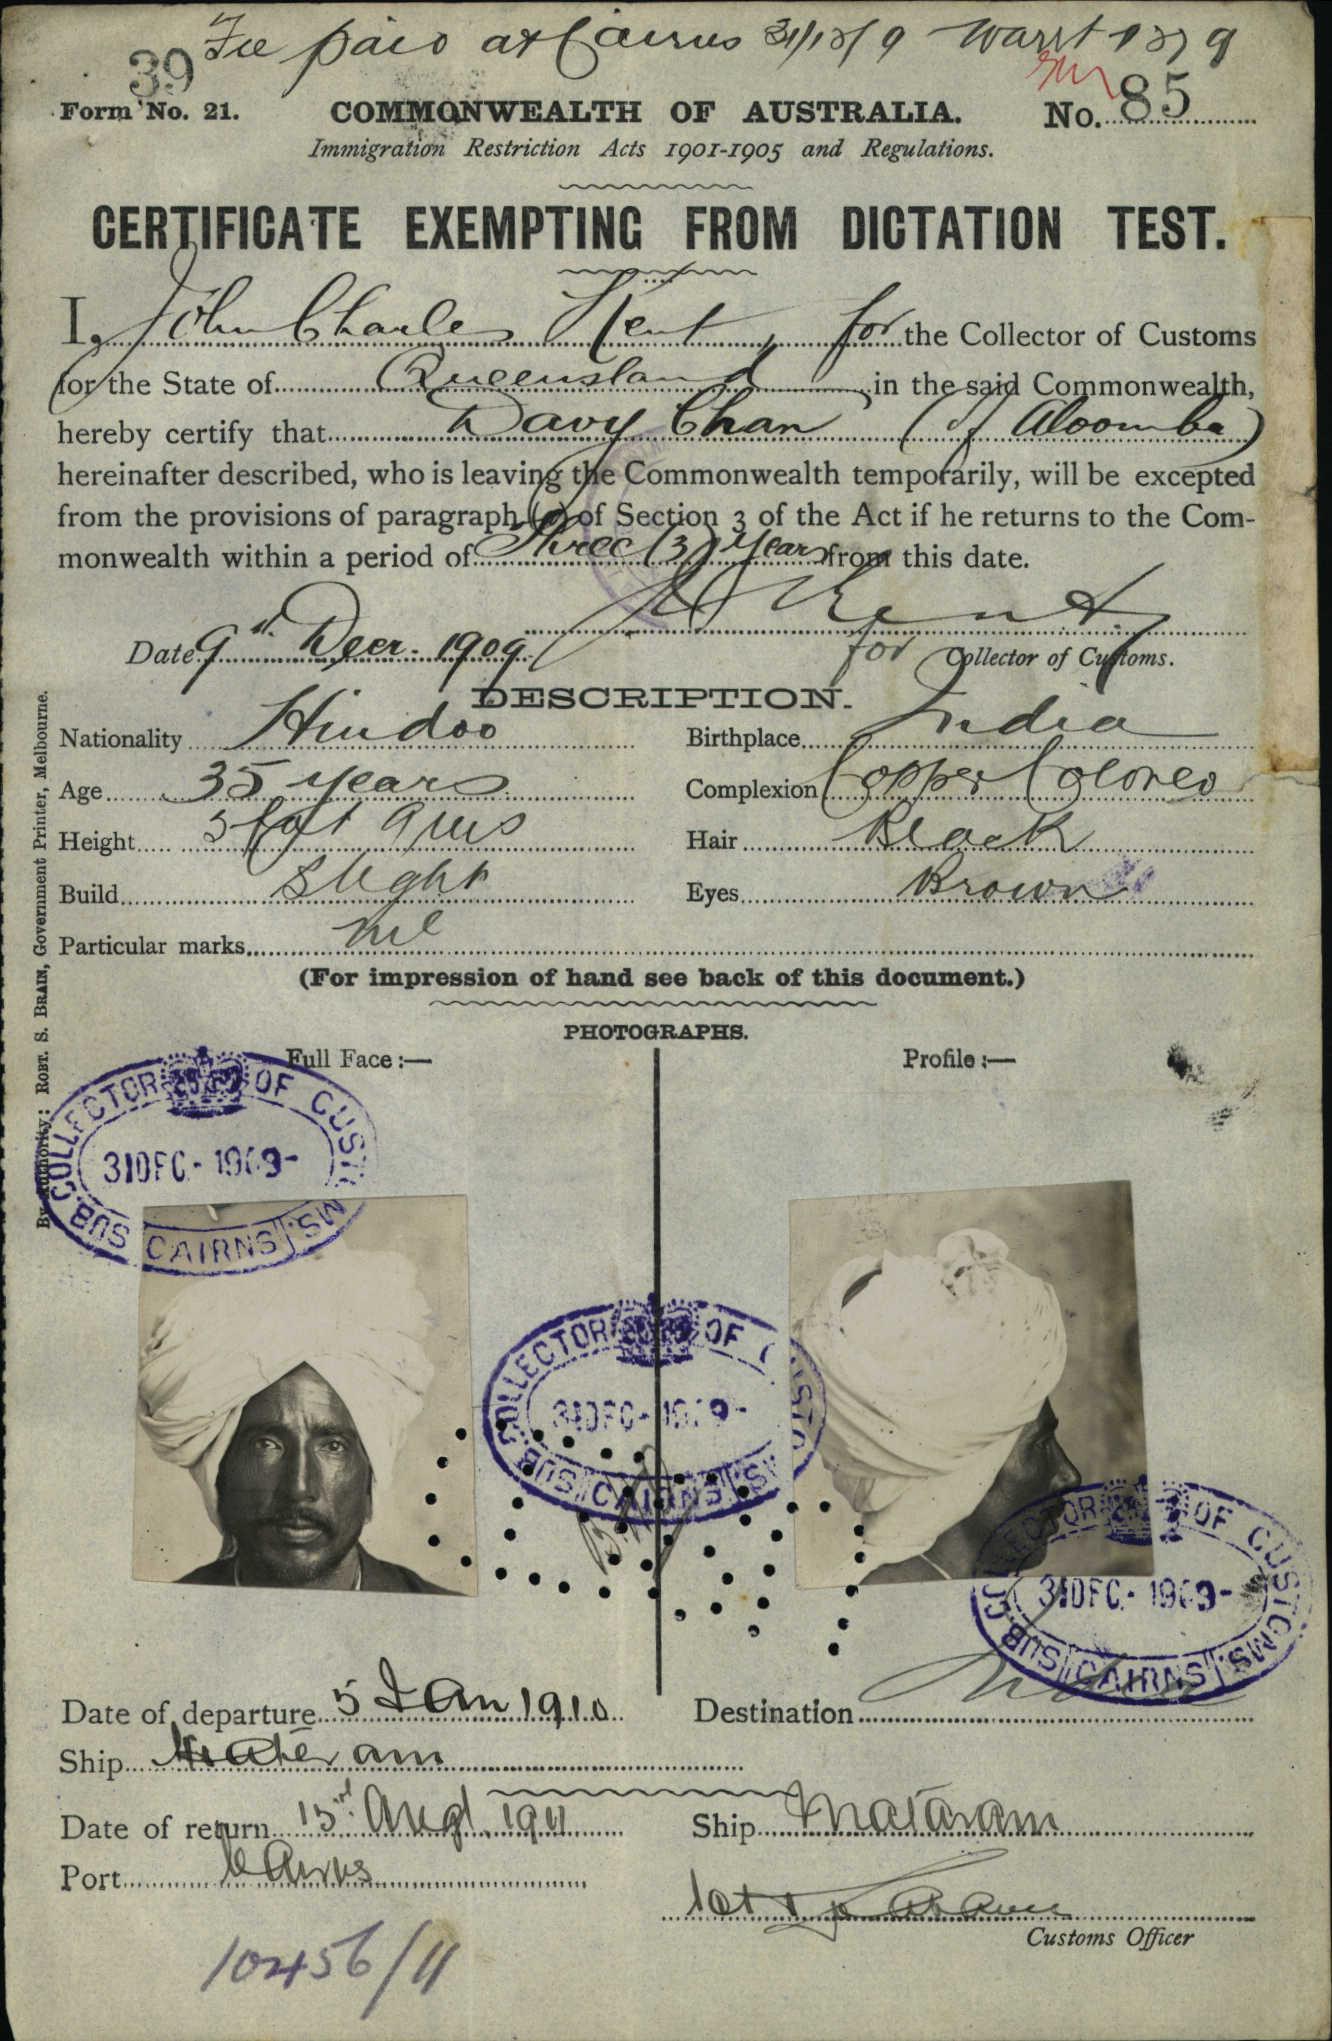 39 Fee paid at Cairns 31/12/9 Warrt 127 9
Form No. 21. COMMONWEALTH OF AUSTRALIA. No. 85
Immigration Restriction Acts 1901-1905 and Regulations.
CERTIFICATE EXEMPTING FROM DICTATION TEST.
I, John Charles Kent, for the Collector of Customs
for the State of Queensland in the said Commonwealth,
hereby certify that Davy Chan (of Aloomba)
hereinafter described, who is leaving the Commonwealth temporarily, will be excepted
from the provisions of paragraph (a) of Section 3 of the Act if he returns to the Com-
monwealth within a period of Three (3) years from this date.
Kent
Date 9 Decr. 1909 for Collector of Customs.
DESCRIPTION.
Nationality Hindoo Birthplace India
Age 35 years Complexion Copper Colored
Height 5 foot 9 ins Hair Black
Build Slight Eyes Brown
Particular marks nil
(For impression of hand see back of this document.)
PHOTOGRAPHS.
Full Face :— Profile :—
SUB. COLLECTOR OF CUSTOMS. CAIRNS
31 DEC - 1909 -
SUB. COLLECTOR OF CUSTOMS. CAIRNS
31 DEC - 1909 -
SUB. COLLECTOR OF CUSTOMS. CAIRNS
31 DEC - 1909 -
Date of departure 5 Jan 1910 Destination
Ship Mataram
Date of return 13 Augt. 1911 Ship Mataram
Port Cairns
Customs Officer
10456/11
By Authority: ROBT. S. BRAIN, Government Printer, Melbourne.